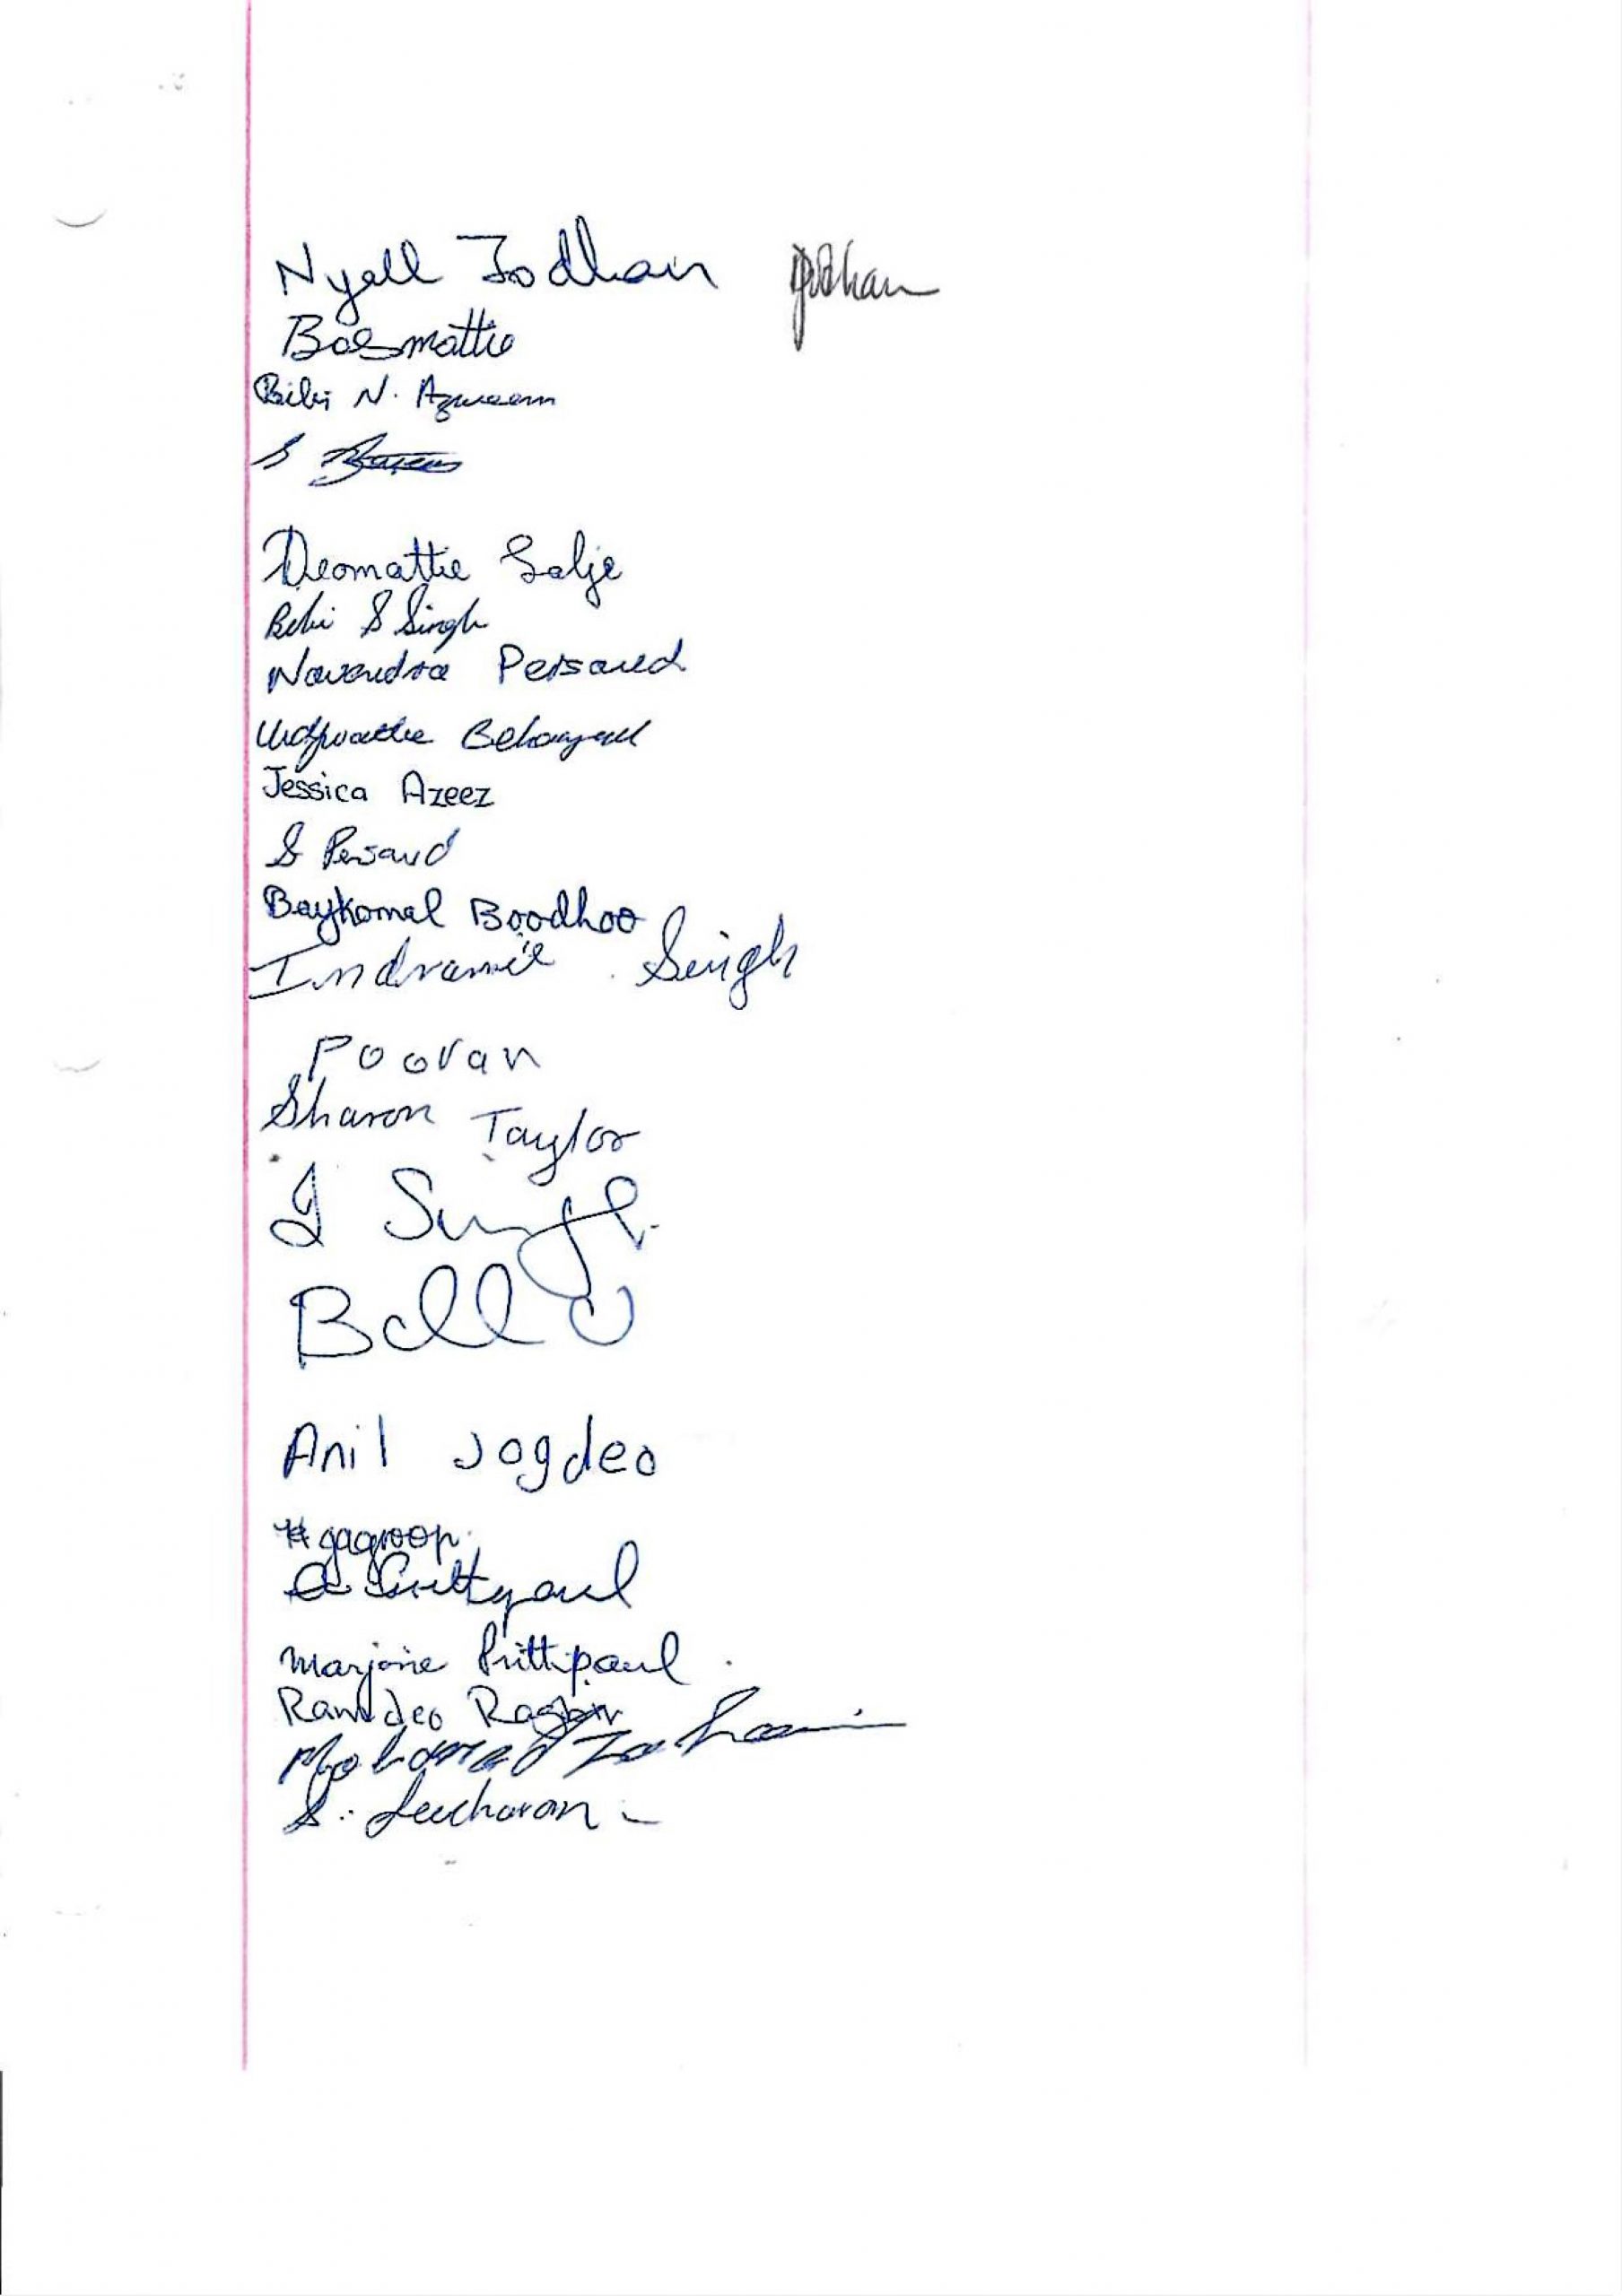 Nyall Jodhan Jodhan
Basmattie
Bibi N. Azureem
S
Deomattie Salje
Bibi S Singh
Navendra Persaud
Behaspaul
Jessica Azeez
S Persaud
Baykomal Boodhoo
Indramie Singh
Pooran
Sharon Taylor
I Singh
Bell
Anil Jogdeo
H Jagroop
Prittypaul
Marjorie Prittipaul
Ramdeo
Mohamed
S. Leecharan